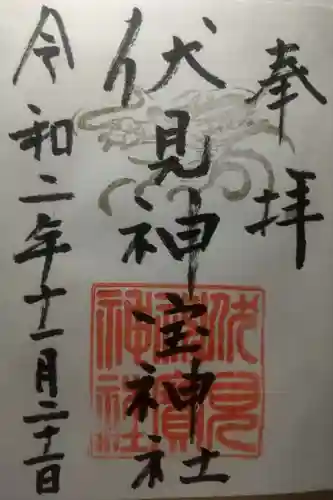 奉拝
伏見神宝神社
令和二年十一月二十二日
伏見神寶神社